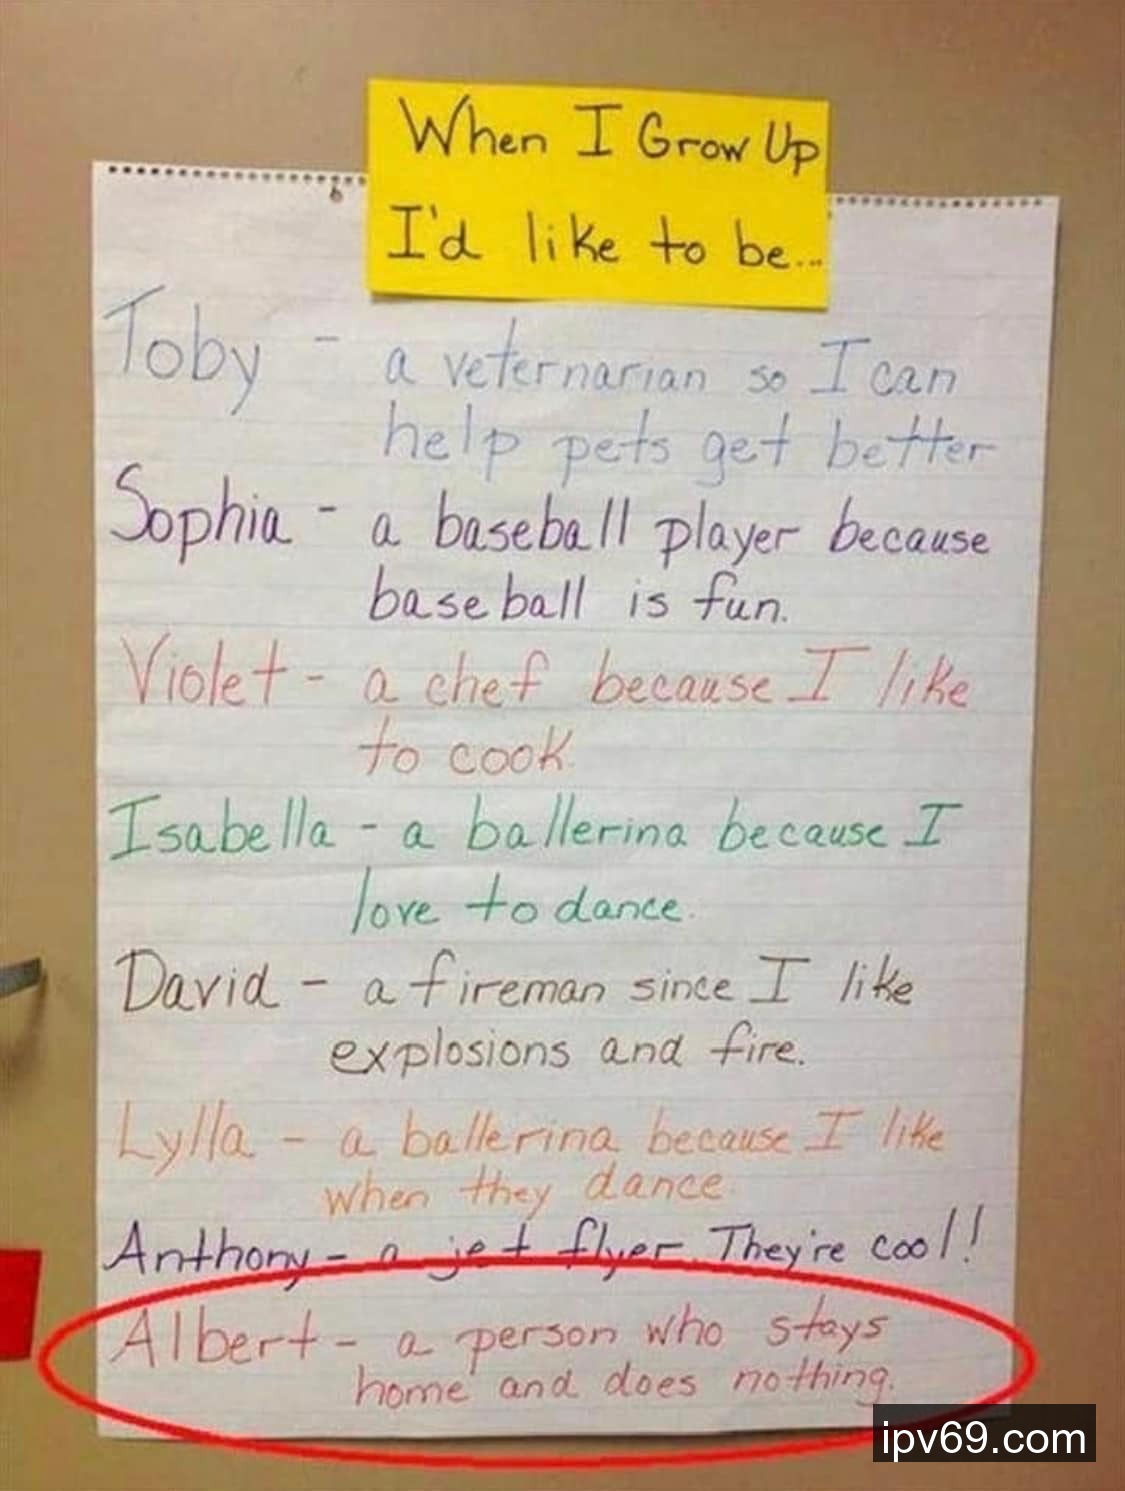 When I Grow Up
I'd like to be...
Toby - a veternarian so I can
help pets get better
Sophia - a baseball player because
baseball is fun.
Violet - a chef because I like
to cook.
Isabella - a ballerina because I
love to dance.
David - a fireman since I like
explosions and fire.
Lylla - a ballerina because I like
when they dance.
Anthony - a jet flyer. They're cool!
Albert - a person who stays
home and does nothing.
ipv69.com